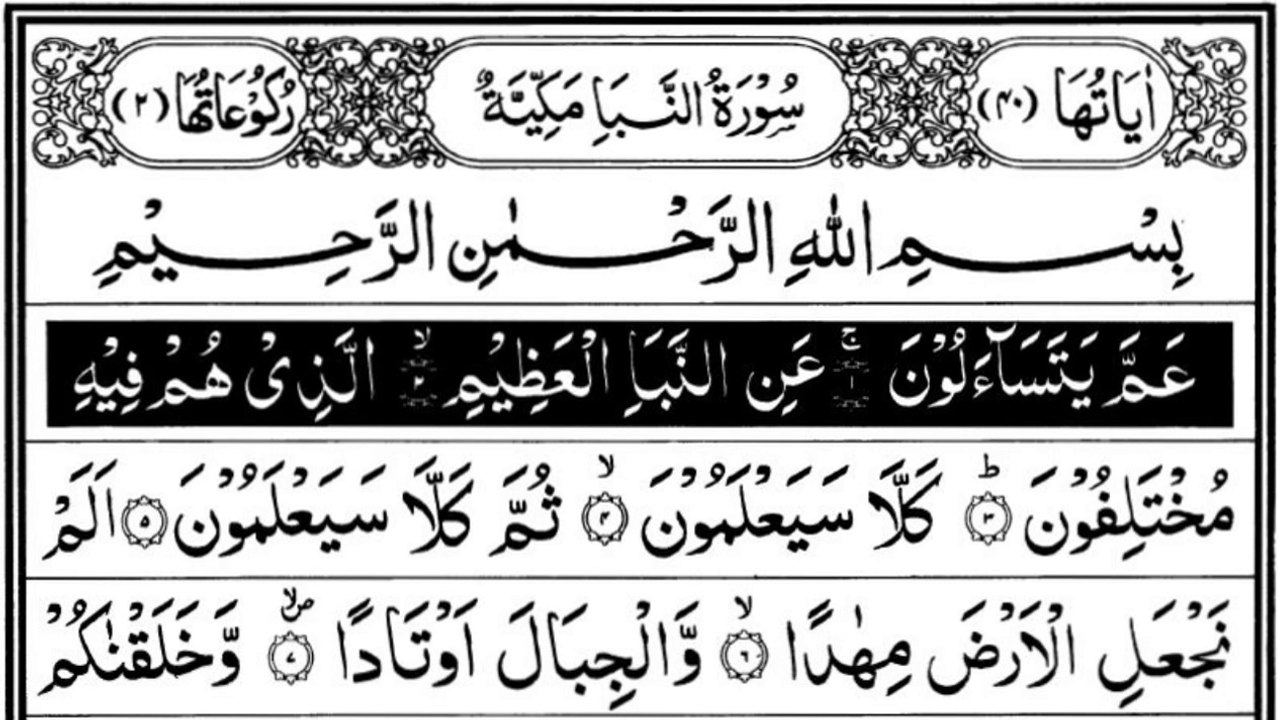 اٰيَاتُهَا (۴۰) سُوْرَةُ النَّبَاِ مَكِّيَّةٌ رُكُوْعَاتُهَا (۲)
بِسْمِ اللّٰهِ الرَّحْمٰنِ الرَّحِيْمِ
عَمَّ يَتَسَآءَلُوْنَ ۚ ۱ عَنِ النَّبَاِ الْعَظِيْمِ ۙ ۲ الَّذِىْ هُمْ فِيْهِ
مُخْتَلِفُوْنَ ؕ ۳ كَلَّا سَيَعْلَمُوْنَ ۙ ۴ ثُمَّ كَلَّا سَيَعْلَمُوْنَ ۵ اَلَمْ
نَجْعَلِ الْاَرْضَ مِهٰدًا ۙ ۶ وَّالْجِبَالَ اَوْتَادًا ۪ۙ ۷ وَّخَلَقْنٰكُمْ